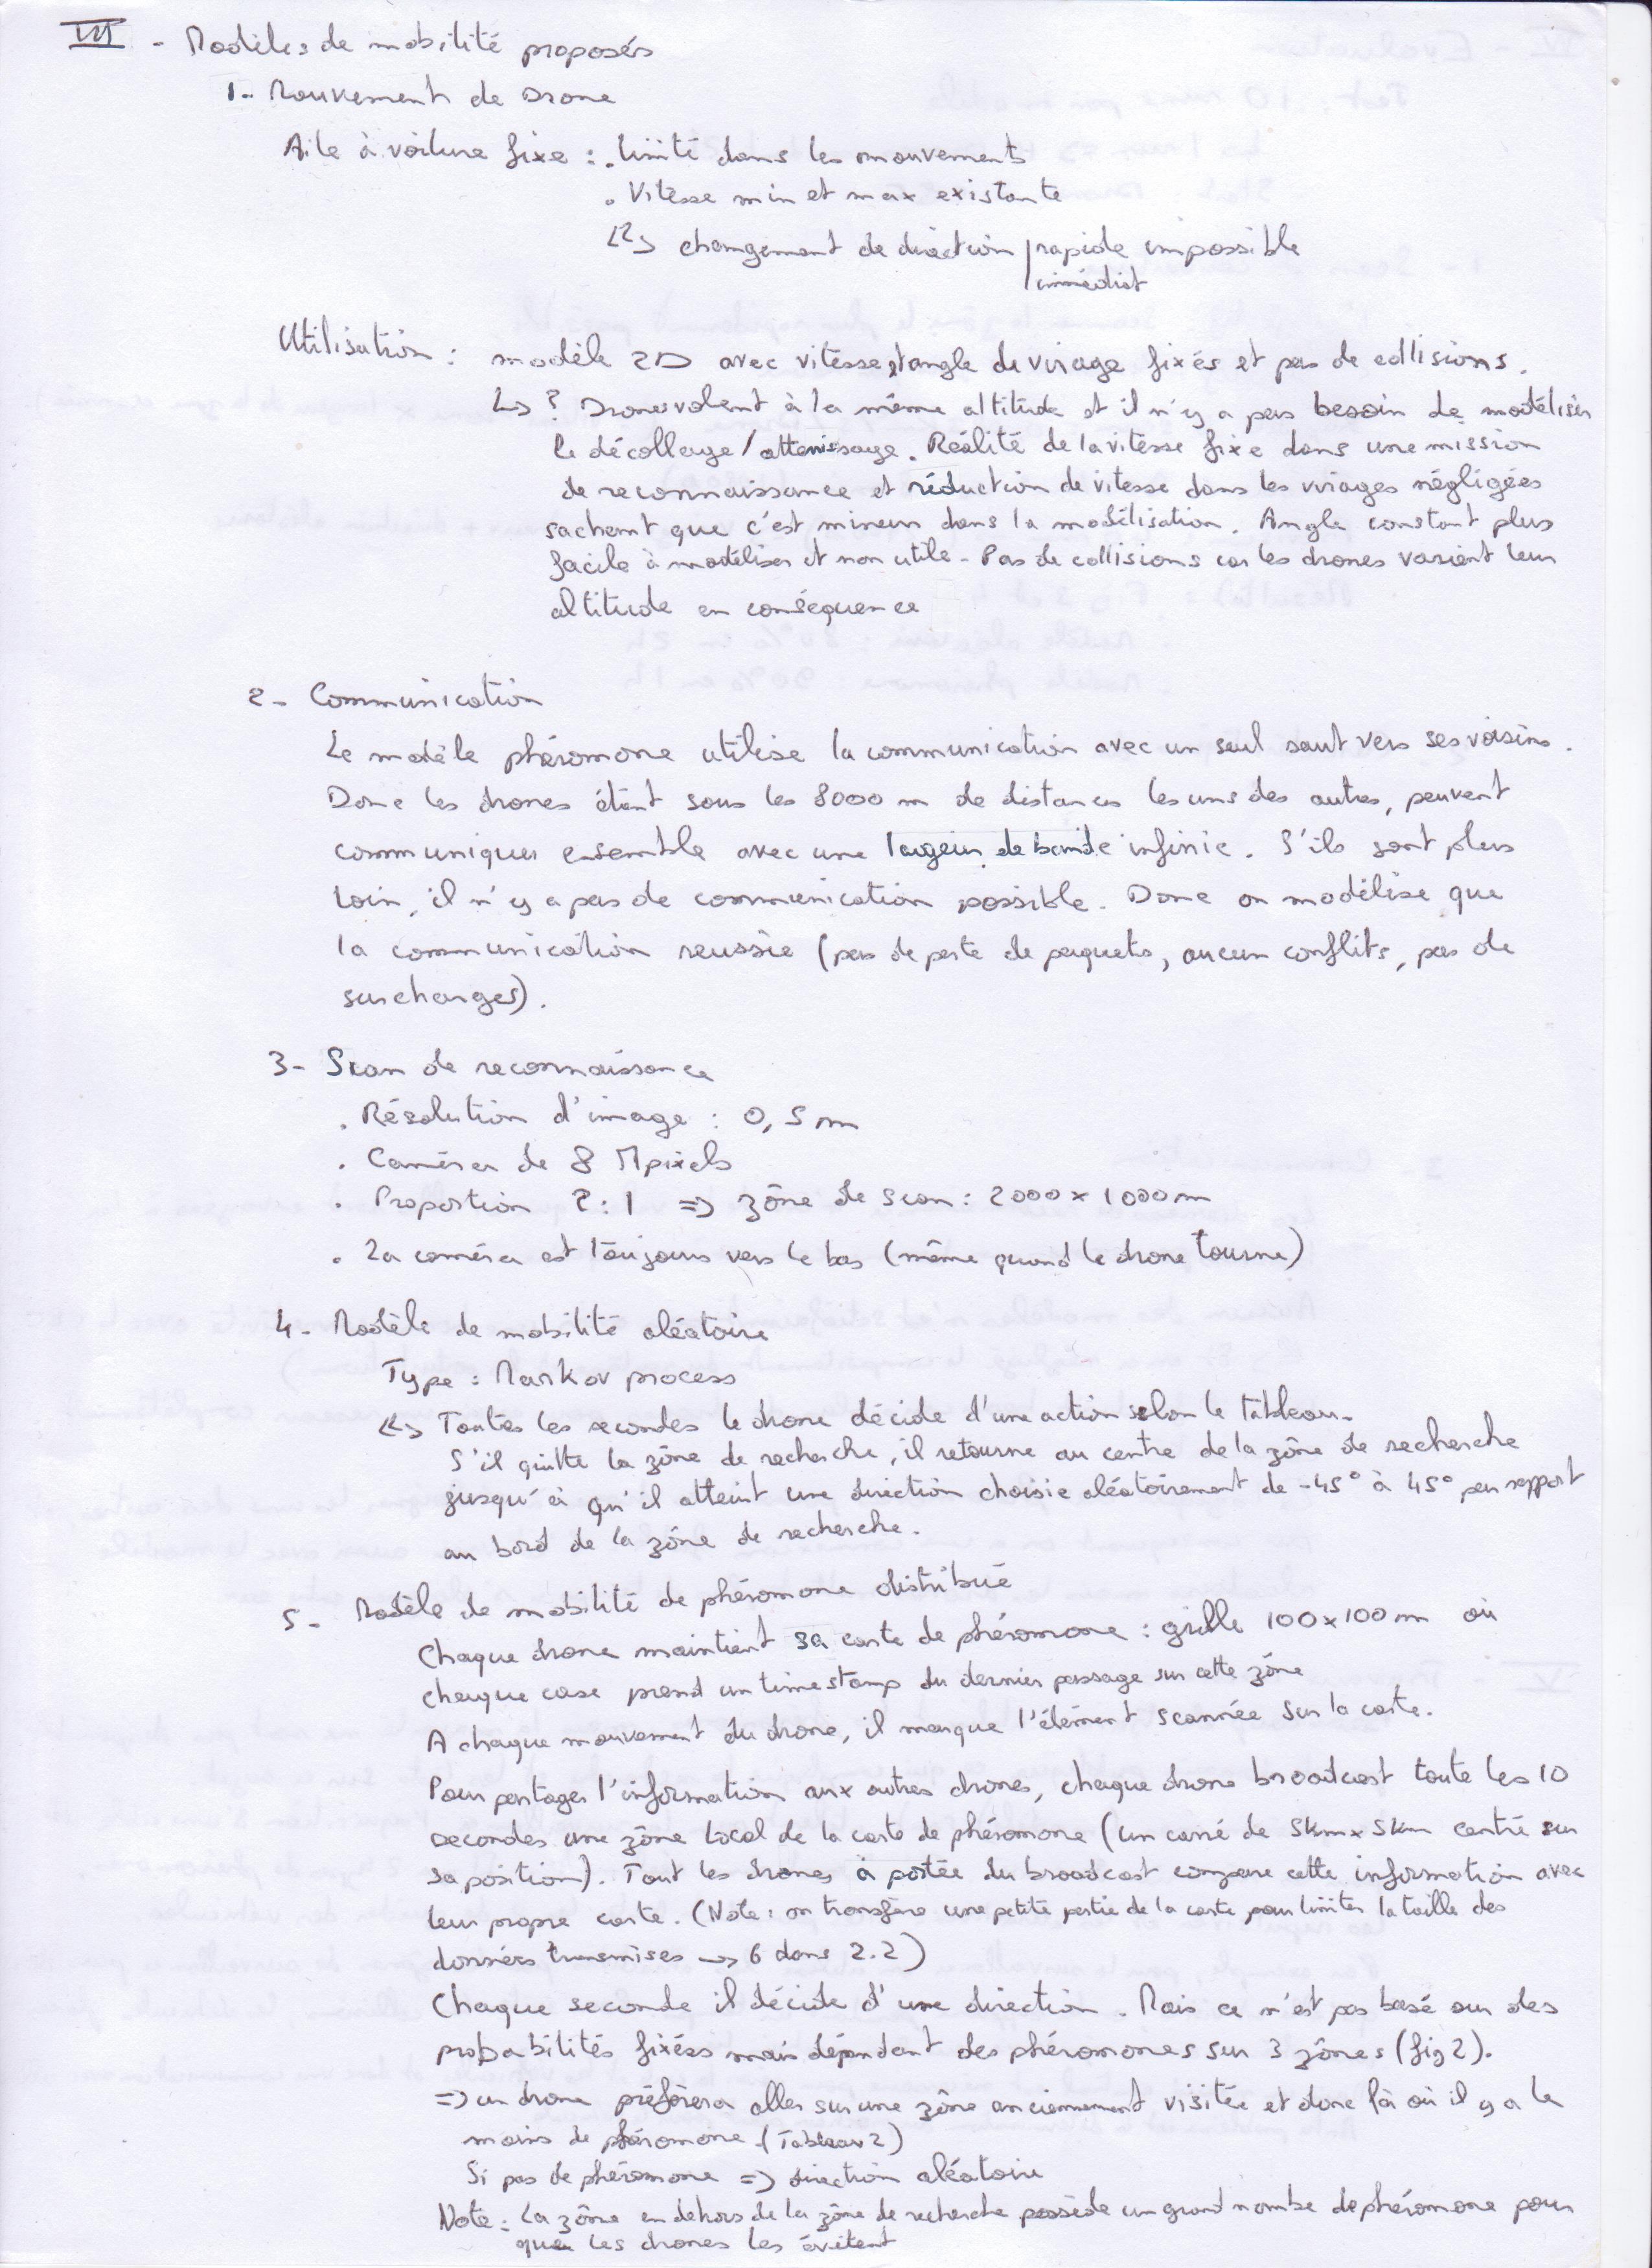 III - Modèles de mobilité proposés
1- Mouvement de Drone
Aile à voilure fixe : . limité dans les mouvements
. Vitesse min et max existante
↳ changement de direction | rapide impossible
| immédiat
Utilisation : modèle 2D avec vitesse et angle de virage fixés et pas de collisions.
↳ ? Drones volent à la même altitude et il n'y a pas besoin de modéliser
le décollage / atterrissage. Réalité de la vitesse fixe dans une mission
de reconnaissance et réduction de vitesse dans les virages négligées
sachant que c'est mineur dans la modélisation. Angle constant plus
facile à modéliser et non utile - Pas de collisions car les drones varient leur
altitude en conséquence
2- Communication
Le modèle phéromone utilise la communication avec un seul saut vers ses voisins.
Donc les drones étant sous les 8000 m de distances les uns des autres, peuvent
communiquer ensemble avec une largeur de bande infinie. S'ils sont plus
loin, il n'y a pas de communication possible. Donc on modélise que
la communication reussie (pas de perte de paquets, aucun conflits, pas de
surcharges).
3- Scan de reconnaissance
. Résolution d'image : 0,5 m
. Caméra de 8 Mpixels
. Proportion 2:1 => zône de scan : 2000 x 1000 m
. La caméra est toujours vers le bas (même quand le drone tourne)
4- Modèle de mobilité aléatoire
Type : Markov process
↳ Toutes les secondes le drone décide d'une action selon le tableau.
S'il quitte la zône de recherche, il retourne au centre de la zône de recherche
jusqu'à qu'il atteint une direction choisie aléatoirement de -45° à 45° par rapport
au bord de la zône de recherche.
5- Modèle de mobilité de phéromone distribué
Chaque drone maintient sa carte de phéromone : grille 100x100 m où
chaque case prend un timestamp du dernier passage sur cette zône
A chaque mouvement du drone, il marque l'élément scannée sur la carte.
Pour partager l'information aux autres drones, chaque drone broadcast toute les 10
secondes une zône local de la carte de phéromone (un carré de 5km x 5km centré sur
sa position). Tout les drones à portée du broadcast compare cette information avec
leur propre carte. (Note : on transfère une petite partie de la carte pour limiter la taille des
données transmises → 6 dans 2.2)
Chaque seconde il décide d'une direction. Mais ce n'est pas basé sur des
probabilités fixées mais dépendant des phéromones sur 3 zônes (fig 2).
=> un drone préférera aller sur une zône anciennement visitée et donc là où il y a le
moins de phéromone (Tableau 2)
Si pas de phéromone => direction aléatoire
Note : La zône en dehors de la zône de recherche possède un grand nombe de phéromone pour
que les drones les évitent